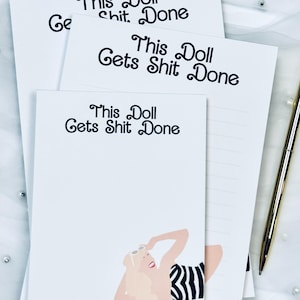 This Doll
Gets Shit Done
This Doll
Gets Shit Done
This Doll
Gets Shit Done